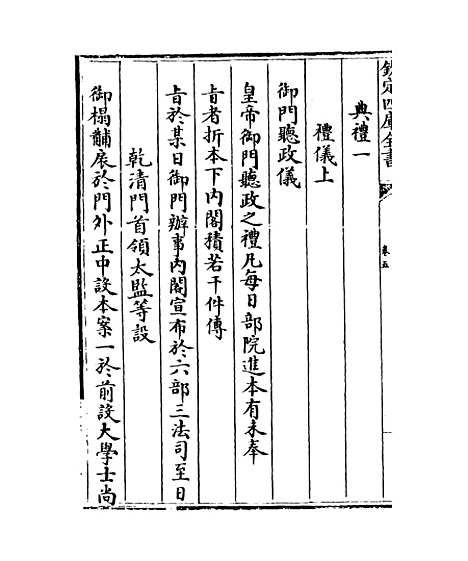 欽定四庫全書
卷五
典禮一
禮儀上
御門聽政儀
皇帝御門聽政之禮凡每日部院進本有未奉
旨者折本下内閣積若干件傳
旨於某日御門辦事内閣宣布於六部三法司至日
乾清門首領太監等設
御榻黼扆於門外正中設本案一於前設大學士尚